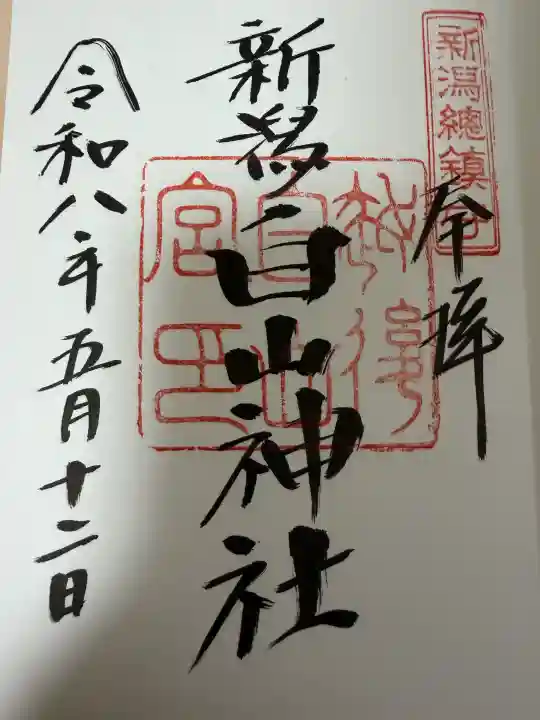 新潟總鎮守
奉拝
新潟白山神社
越後白山宮印
令和八年五月十二日